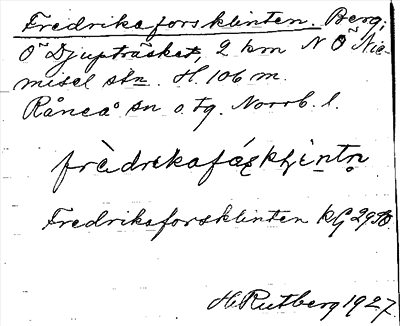 Fredrikaforsklinten. Berg,
Ö Djupträsket, 2 km N Ö Nie-
misel stn. H. 106 m.
Råneå sn o. tg. Norrb. l.
Fredrikaforsklinten KG 29
H. Rutberg 1927.